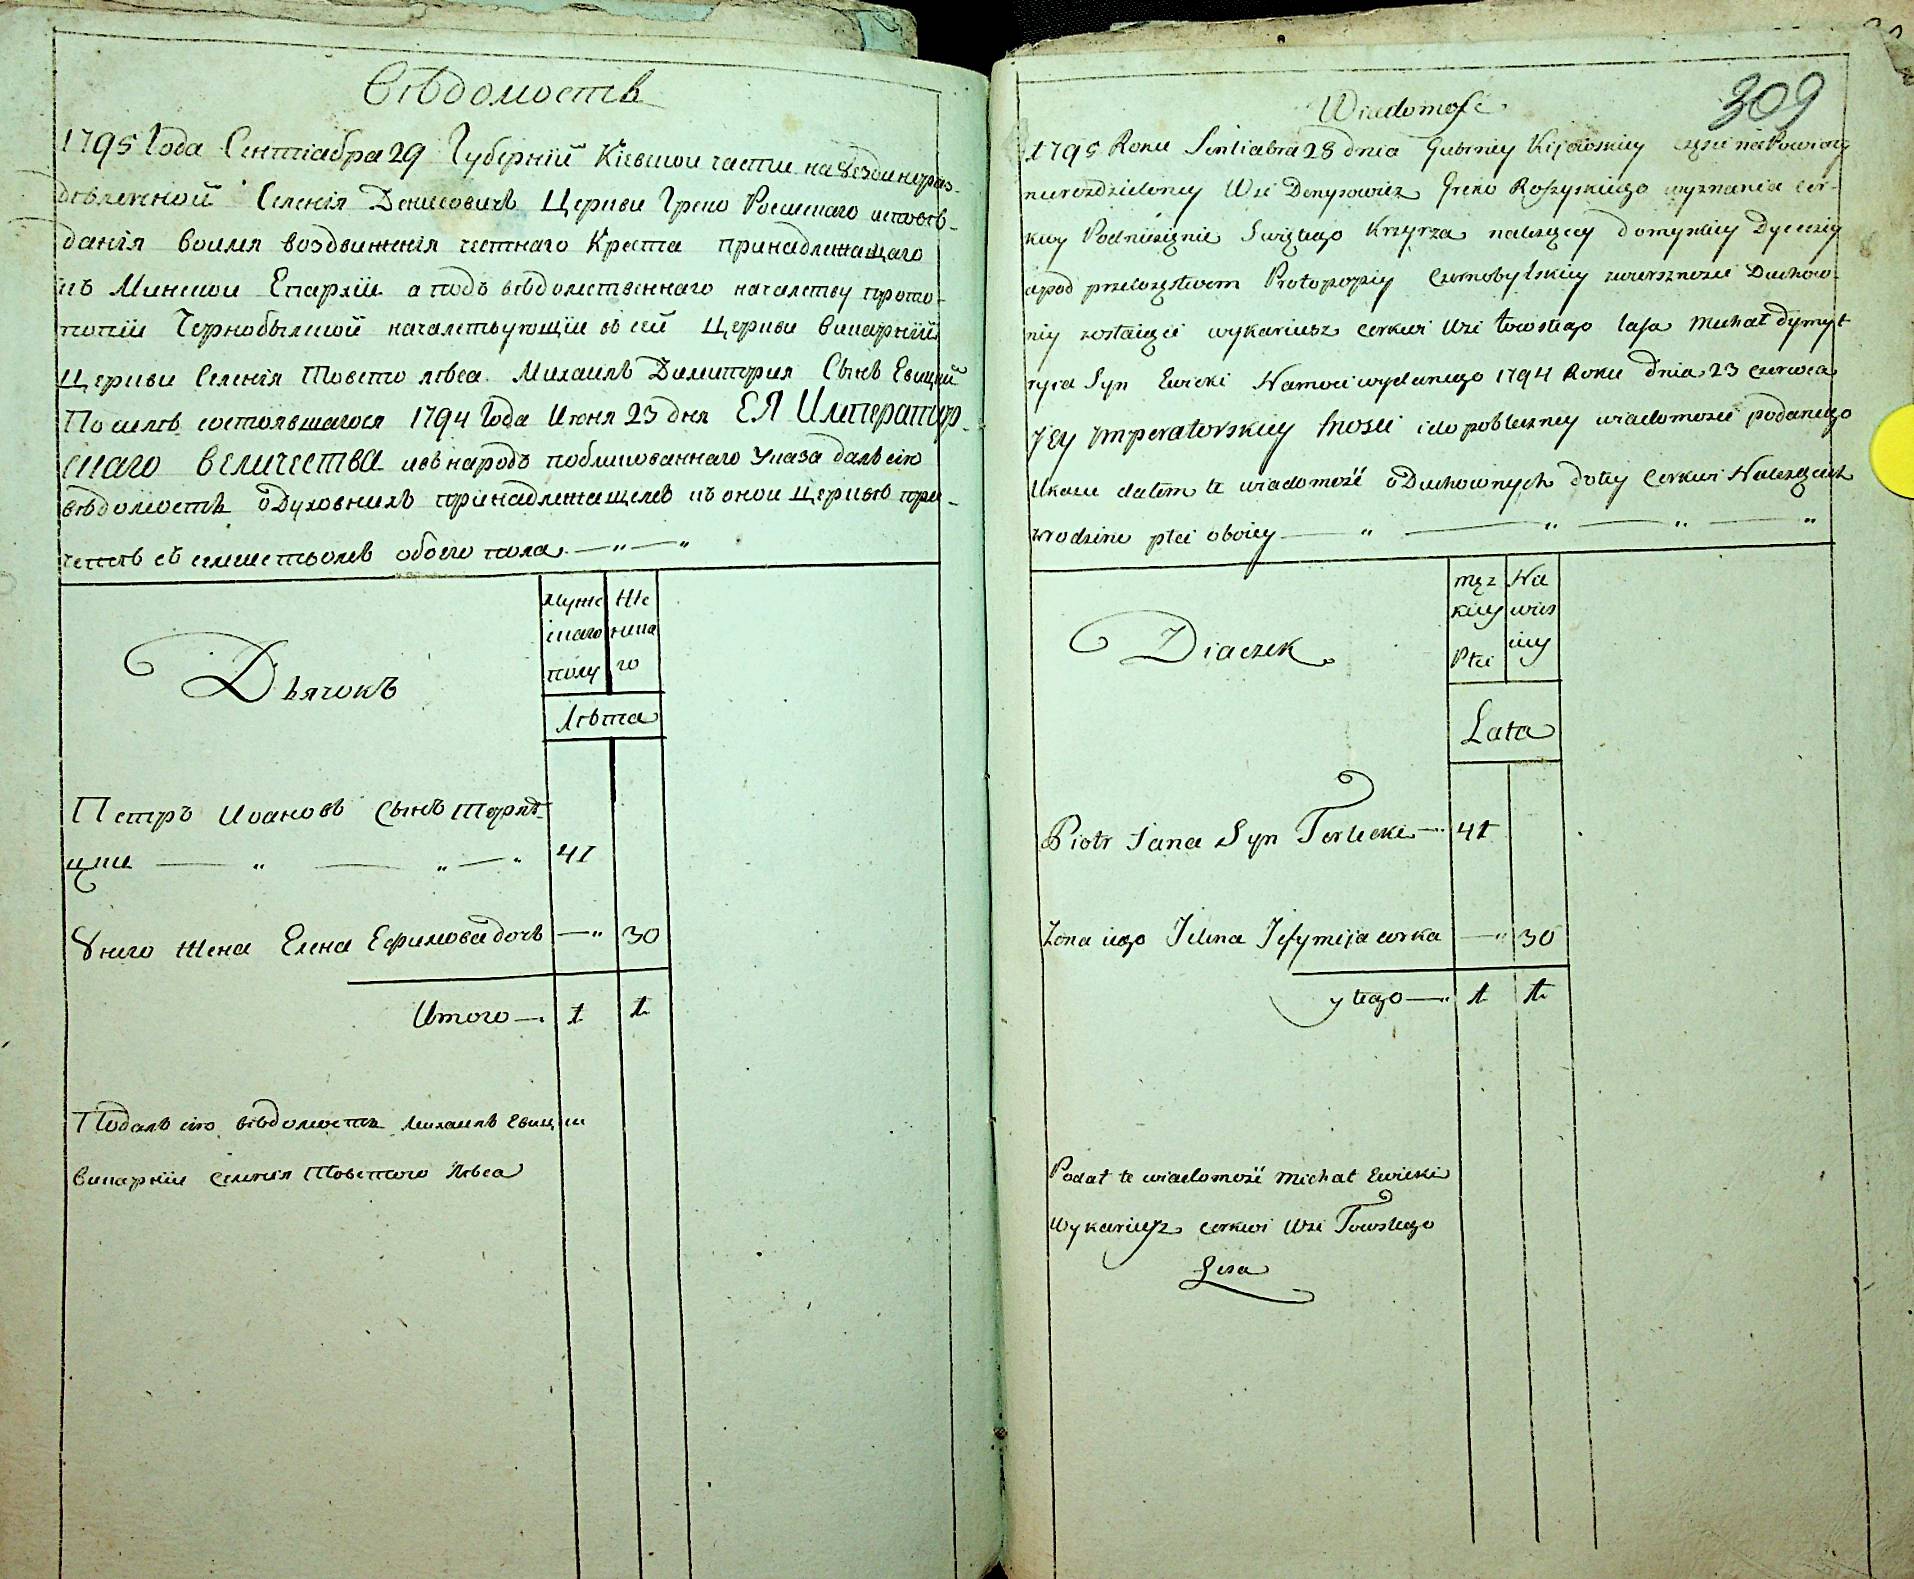 Вѣдомость
1795 Года Сентіабра 29 Губерніи Кіевской части на уезди нераз-
дѣленной Селенія Денисовичъ Церкви Греко Росискаго исповѣ-
данія воимя воздвиженія честнаго Креста принадлежащаго
къ Минской Епархіи а подъ вѣдомственнаго началству прото-
попіи Чернобылской началствующіи въ сей Церкви викарніи
Церкви Селенія Товсто лѣса Михаилъ Димитрія Сынъ Евицкій
По силѣ состоявшагося 1794 Года Июня 23 дня ЕЯ Император-
скаго величества ивъ народъ публикованнаго Указа далъ сію
вѣдомость о Духовнихъ принадлежащихъ къ оной Церквѣ при-
четѣ съ семействомъ обоего пола — „ — „
Дьячокъ
муже
скаго
полу
Же
нска
го
Лѣта
Петръ Ивановъ Сынъ Терле-
цкии — „ — „ — „ 41
У него жена Елена Ефимова дочь — „ 30
Итого — 1 1
Подалъ сію вѣдомость Михаилъ Евицкии
викарніи селенія Товстого Лѣса
309
Wiadomość
1795 Roku Sentiabra 28 dnia Guberniy Kijowskiey części na Powiaty
nierozdzieloney Wsi Denysowicz Greko Roszyskiego wyznania cer-
kwy Podniesienie Swiętego Krzyrza należącey do mynskiey Dyecezij
a pod przełożęstwem Protopopiy Czernobylskiey zwierzhności Duchow-
niy zostaiący wykariusz cerkwi Wsi towstego lasa Michał dymyt
ryia Syn Ewicki Namoci wydanego 1794 Roku Dnia 23 czerwca
Jey Jmperatorskiey mości i do publiczney wiadomości podanego
Ukazu dałem te wiadomość o Duchownych do tey Cerkwi Należących
w rodzinie płci oboiey — „ — „ — „ — „
Diaczek
męz
kiey
Płci
Nie
wies
ciey
Lata
Piotr Jana Syn Terlecki — 41
Zona iego Jelena Jefymija corka — „ 30
y tego — 1 1
Podał te wiadomość Michał Ewicki
Wykariusz cerkwi Wsi Towstego
Lesa